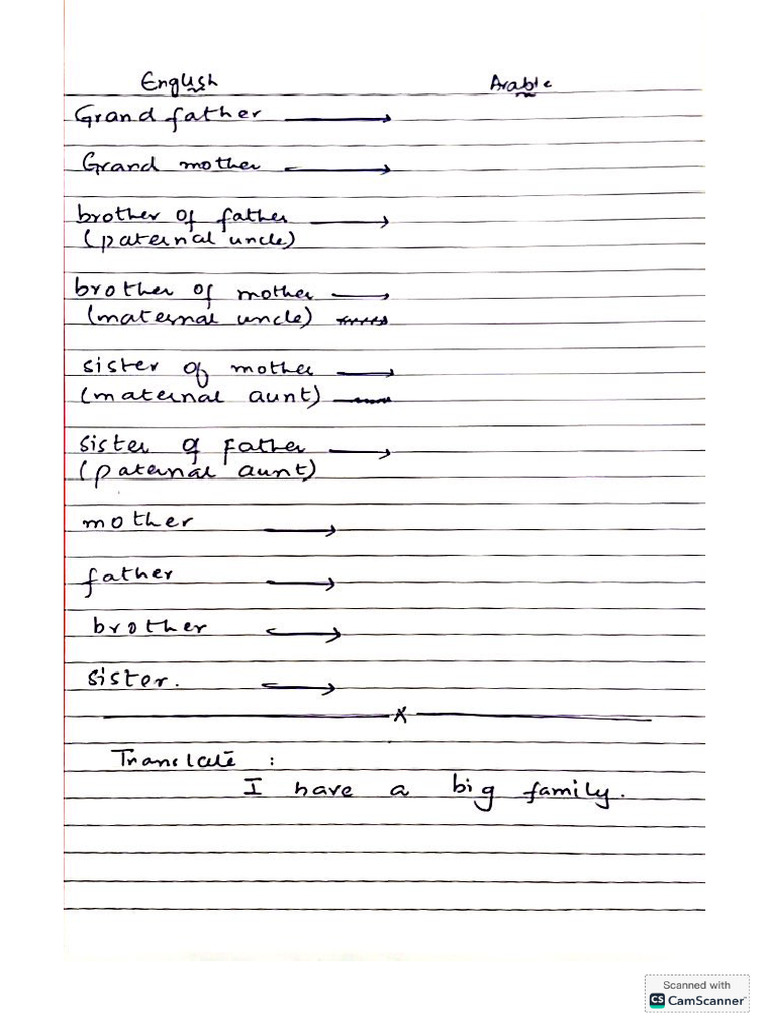 English Arabic
Grand father →
Grand mother →
brother of father →
(paternal uncle)
brother of mother →
(maternal uncle)
sister of mother →
(maternal aunt)
sister of father →
(paternal aunt)
mother →
father →
brother →
sister. →
Translate :
I have a big family.
Scanned with
CS CamScanner